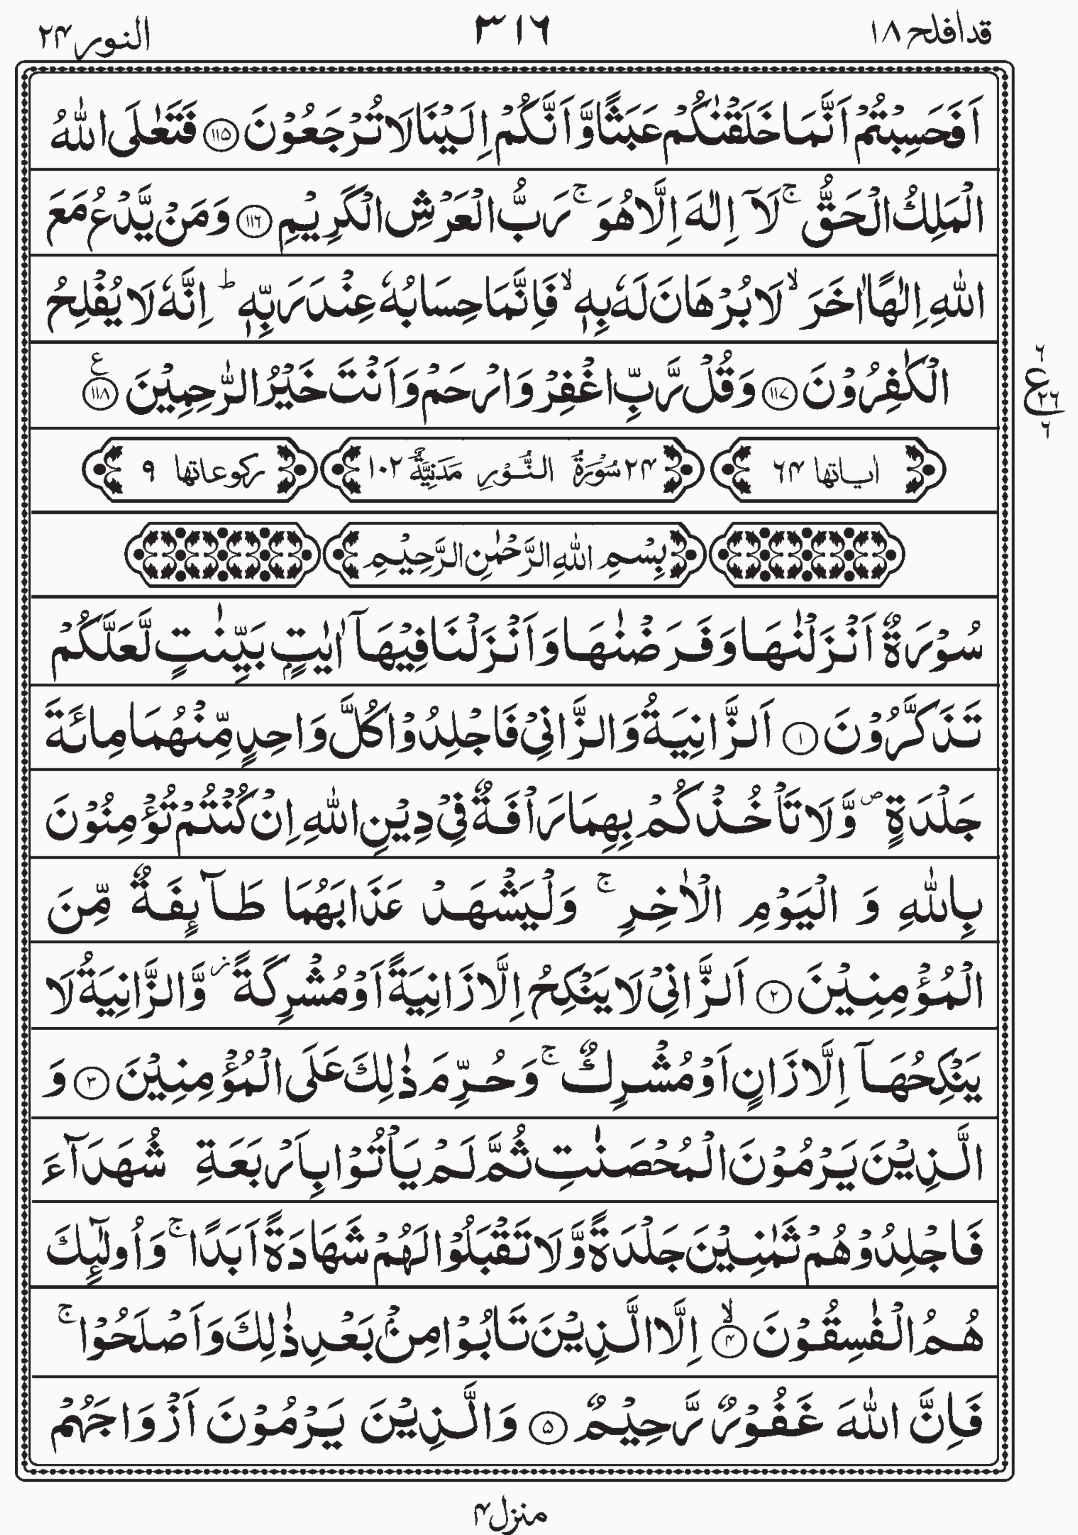 قد افلح ١٨
٣١٦
النور ٢٤
اَفَحَسِبْتُمْ اَنَّمَا خَلَقْنٰكُمْ عَبَثًا وَّ اَنَّكُمْ اِلَيْنَا لَا تُرْجَعُوْنَ ١١٥ فَتَعٰلَى اللّٰهُ
الْمَلِكُ الْحَقُّ ۚ لَاۤ اِلٰهَ اِلَّا هُوَ ۚ رَبُّ الْعَرْشِ الْكَرِيْمِ ١١٦ وَمَنْ يَّدْعُ مَعَ
اللّٰهِ اِلٰهًا اٰخَرَ ۙ لَا بُرْهَانَ لَهٗ بِهٖ ۙ فَاِنَّمَا حِسَابُهٗ عِنْدَ رَبِّهٖ ؕ اِنَّهٗ لَا يُفْلِحُ
الْكٰفِرُوْنَ ١١٧ وَقُلْ رَّبِّ اغْفِرْ وَارْحَمْ وَاَنْتَ خَيْرُ الرّٰحِمِيْنَ ١١٨ ع
٦
ع ٢٦
٦
اٰياتها ٦٤ ٢٤ سُوْرَةُ النُّوْرِ مَدَنِيَّةٌ ١٠٢ ركوعاتها ٩
بِسْمِ اللّٰهِ الرَّحْمٰنِ الرَّحِيْمِ
سُوْرَةٌ اَنْزَلْنٰهَا وَفَرَضْنٰهَا وَاَنْزَلْنَا فِيْهَاۤ اٰيٰتٍۭ بَيِّنٰتٍ لَّعَلَّكُمْ
تَذَكَّرُوْنَ ١ اَلزَّانِيَةُ وَالزَّانِيْ فَاجْلِدُوْا كُلَّ وَاحِدٍ مِّنْهُمَا مِائَةَ
جَلْدَةٍ ۪ وَّلَا تَاْخُذْكُمْ بِهِمَا رَاْفَةٌ فِيْ دِيْنِ اللّٰهِ اِنْ كُنْتُمْ تُؤْمِنُوْنَ
بِاللّٰهِ وَ الْيَوْمِ الْاٰخِرِ ۚ وَلْيَشْهَدْ عَذَابَهُمَا طَآئِفَةٌ مِّنَ
الْمُؤْمِنِيْنَ ٢ اَلزَّانِيْ لَا يَنْكِحُ اِلَّا زَانِيَةً اَوْ مُشْرِكَةً ؗ وَّالزَّانِيَةُ لَا
يَنْكِحُهَاۤ اِلَّا زَانٍ اَوْ مُشْرِكٌ ۚ وَحُرِّمَ ذٰلِكَ عَلَى الْمُؤْمِنِيْنَ ٣ وَ
الَّذِيْنَ يَرْمُوْنَ الْمُحْصَنٰتِ ثُمَّ لَمْ يَاْتُوْا بِاَرْبَعَةِ شُهَدَآءَ
فَاجْلِدُوْهُمْ ثَمٰنِيْنَ جَلْدَةً وَّلَا تَقْبَلُوْا لَهُمْ شَهَادَةً اَبَدًا ۚ وَاُولٰٓئِكَ
هُمُ الْفٰسِقُوْنَ ٤ ۙ اِلَّا الَّذِيْنَ تَابُوْا مِنْۢ بَعْدِ ذٰلِكَ وَاَصْلَحُوْا ۚ
فَاِنَّ اللّٰهَ غَفُوْرٌ رَّحِيْمٌ ٥ وَالَّذِيْنَ يَرْمُوْنَ اَزْوَاجَهُمْ
منزل ٤